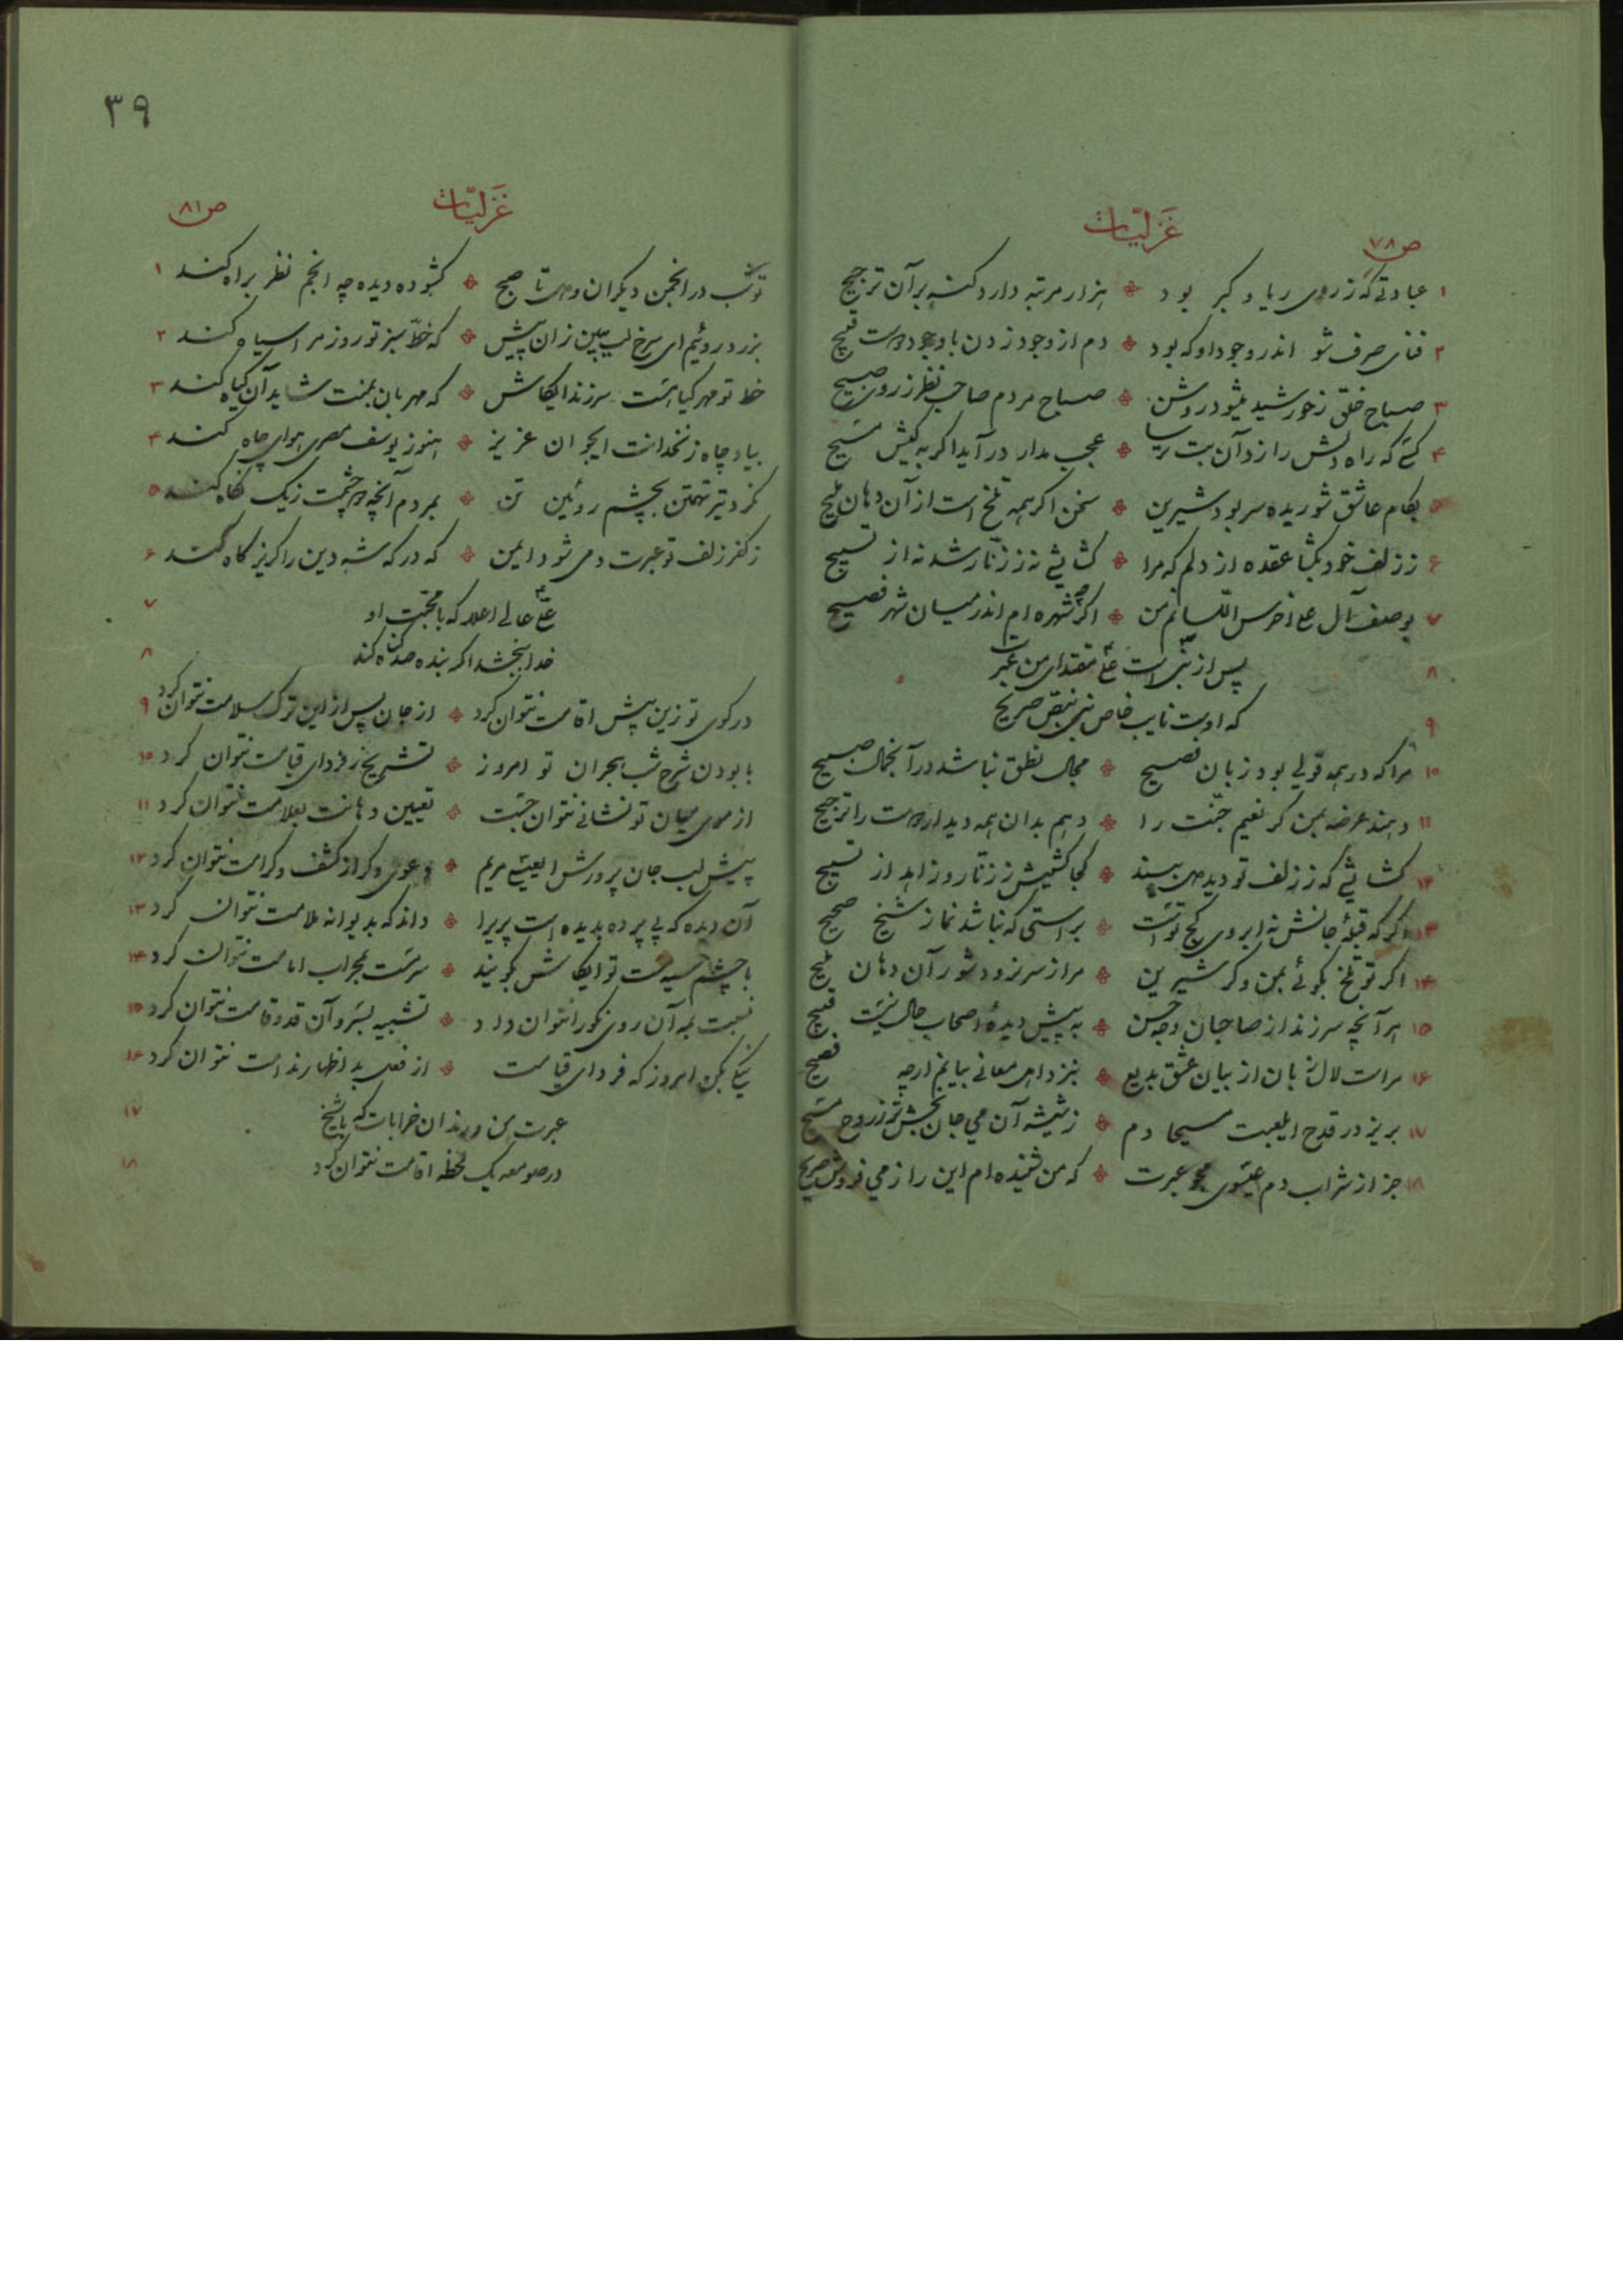 غزلیات
ص ۷۸
۱ عبادتی که ز روی ریا و کبر بود ❖ هزار مرتبه دارد گنه بر آن ترجیح
۲ فنای صرف شو اندر وجود او که بود ❖ دم از وجود زدن با وجود دوست قبیح
۳ صباح خلق ز خورشید میشود روشن ❖ صباح مردم صاحب نظر ز روی صبیح
۴ کسی که راه دلش را زد آن بت ترسا ❖ عجب مدار در آید اگر به کیش مسیح
۵ بکام عاشق شوریده سر بود شیرین ❖ سخن اگر همه تلخ است از آن دهان ملیح
۶ ز زلف خود بگشا عقده از دلم که مرا ❖ گشایشی نه ز زنار شد نه از تسبیح
۷ بوصف آل علی اخرس اللسانم من ❖ اگرچه شهره ام اندر میان شهر فصیح
۸ پس از نبی است علی مقتدای من عبرت
۹ که اوست نایب خاص نبی بنص صریح
۱۰ مرا که در همه قولی بود زبان فصیح ❖ مجال نطق نباشد در آن جمال صبیح
۱۱ دهند عرضه بمن گر نعیم جنت را ❖ دهم بدان همه دیدار دوست را ترجیح
۱۲ گشایشی که ز زلف تو دید می بیند ❖ کجا کشیش ز زنار و زاهد از تسبیح
۱۳ هر که قبلهٔ جانش نه ابروی کج توست ❖ براستی که نباشد نماز شیخ صحیح
۱۴ اگر تو تلخ بگوئی بمن وگر شیرین ❖ مرا ز سر نرود شور آن دهان ملیح
۱۵ هر آنچه سر زند از صاحبان وجه حسن ❖ به پیش دیدهٔ اصحاب حال نیست قبیح
۱۶ مراست لال زبان از بیان عشق بدیع ❖ بنزد اهل معانی بیانم ارچه فصیح
۱۷ بریز در قدح ای لعبت مسیحا دم ❖ ز شیشه آن می جان بخش تر ز روح مسیح
۱۸ جز از شراب دم عیسوی مجو عبرت ❖ که من شنیده ام این را ز می فروش صریح
۳۹
غزلیات
ص ۸۱
تو شب در انجمن دیگران و من تا صبح ❖ گشوده دیده چه انجم نظر براه کند ۱
بزرد روئیم ای سرخ لب ببین زان پیش ❖ که خط سبز تو روز مرا سیاه کند ۲
خط تو مهر گیاهست سر زند ایکاش ❖ که مهربان بمنت شاید آن گیاه کند ۳
بیاد چاه زنخدانت ای جوان عزیز ❖ هنوز یوسف مصری هوای چاه کند ۴
نکرد تیر تهمتن بچشم روئین تن ❖ بمردم آنچه دو چشمت ز یک نگاه کند ۵
ز کفر زلف تو عبرت دمی شود ایمن ❖ که درگه شه دین را گریزگاه کند ۶
علی عالی اعلا که با محبت او ۷
خدا ببخشد اگر بنده صد گناه کند ۸
در کوی تو زین بیش اقامت نتوان کرد ❖ از جان پس از این ترک سلامت نتوان کرد ۹
با بودن شرح شب هجران تو امروز ❖ تشریح ز فردای قیامت نتوان کرد ۱۰
از موی میان تو نشانی نتوان جست ❖ تعیین دهانت بعلامت نتوان کرد ۱۱
پیش لب جان پرورش ای عیسی مریم ❖ دعوی دگر از کشف و کرامت نتوان کرد ۱۲
آن دیده که بی پرده بدیده است پریرا ❖ داند که بدیوانه ملامت نتوان کرد ۱۳
با چشم سیه مست تو ایکاش بگویند ❖ سرمست بمحراب امامت نتوان کرد ۱۴
نسبت بمه آن روی نکو را نتوان داد ❖ تشبیه بسرو آن قد و قامت نتوان کرد ۱۵
نیکی بکن امروز که فردای قیامت ❖ از فعل بد اظهار ندامت نتوان کرد ۱۶
عبرت من و رندان خرابات که با شیخ ۱۷
در صومعه یک لحظه اقامت نتوان کرد ۱۸